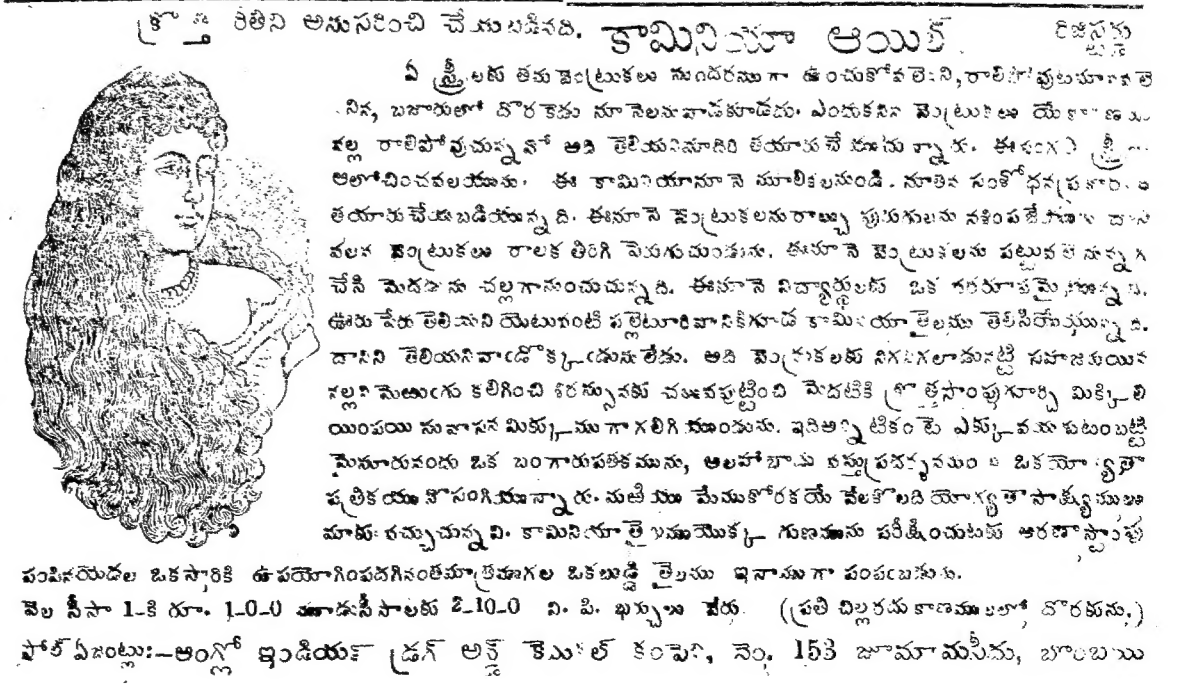 క్రొత్త రీతిని అనుసరించి చేయబడినది. కామినియా ఆయిల్ రిజిస్టర్డు
ఏ స్త్రీలకు తమ వెంట్రుకలు సుందరముగా ఉంచుకోవలెనని, రాలిపోవుట మానవలె
నిన, బజారులో దొరకెడు నూనెలను వాడకూడదు. ఎందుకనిన వెంట్రుకలు యే కారణము
వల్ల రాలిపోవుచున్నవో అది తెలియనిమాదిరి తయారుచేయుచున్నారు. ఈసంగతి స్త్రీలు
ఆలోచించవలయును. ఈ కామినియానూనె మూలికలనుండి. నూతన సంశోధన ప్రకారం
తయారుచేయబడియున్నది. ఈనూనె వెంట్రుకలను రాల్చు పురుగులను నశింపజేయును దాని
వలన వెంట్రుకలు రాలక తిరిగి పెరుగుచుండును. ఈనూనె వెంట్రుకలను పట్టువలె నున్నగ
చేసి మెదడును చల్లగానుంచుచున్నది. ఈనూనె విద్యార్థులకు ఒక వరరూపమైయున్నది.
ఊరు పేరు తెలియని యెటువంటి పల్లెటూరివానికిగూడ కామినియా తైలము తెలిసియేయున్నది.
దానిని తెలియనివాఁడొక్కఁడును లేడు. అది వెంట్రుకలకు నిగనిగలాడునట్టి సహజమయిన
నల్లని మెఱుఁగు కలిగించి శిరస్సునకు చలువపుట్టించి మెదటికి క్రొత్తసొంపుగూర్చి మిక్కిలి
యింపయి సువాసన మిక్కుముగా గలిగియుండును. ఇది అన్నిటికంటె ఎక్కువ యగుటంబట్టి
మైసూరునందు ఒక బంగారుపతకమును, అలహాబాదు వస్తుప్రదర్శనమున ఒక యోగ్యతా
పత్రికయు నొసంగియున్నారు. మఱియు మేముకోరకయే వేలకొలది యోగ్యతాసాక్ష్యములు
మాకు వచ్చుచున్నవి. కామినియా తైలముయొక్క గుణమును పరీక్షించుటకు ఆరణా స్టాంపు
పంపినయెడల ఒకసారికి ఉపయోగింపదగినంతమాత్రముగల ఒకబుడ్డి తైలము ఇనాముగా పంపఁబడును.
వెల సీసా 1-కి రూ. 1-0-0 మూడుసీసాలకు 2-10-0 వి. పి. ఖర్చులు వేరు. (ప్రతి చిల్లరదుకాణములలో దొరకును.)
సోల్ ఏజంట్లు:—ఆంగ్లో ఇండియన్ డ్రగ్ అన్డ్ కెమికల్ కంపెని, నెం. 153 జూమామసీదు, బొంబాయి